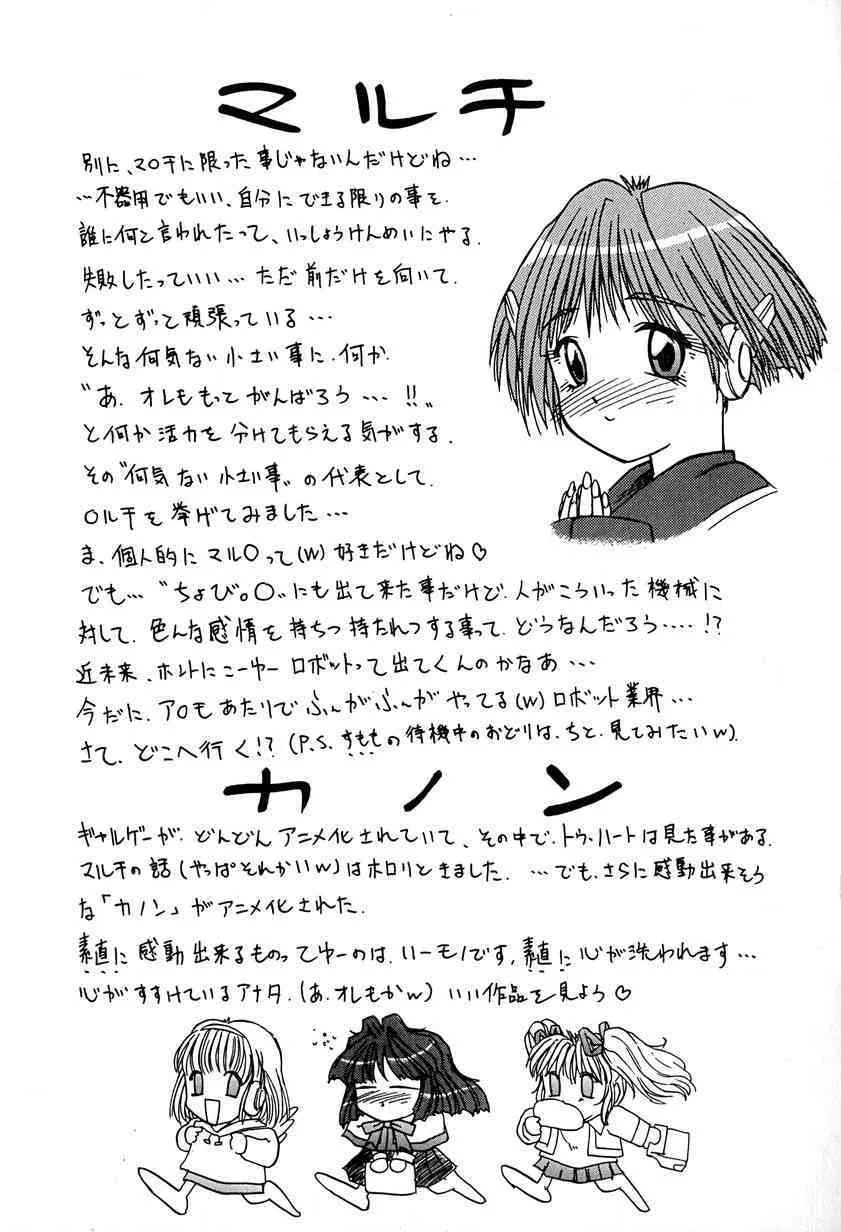 マルチ
別に、マ○チに限った事じゃないんだけどね…
…不器用でもいい、自分にできる限りの事を
誰に何と言われたって、いっしょうけんめいにやる.
失敗したっていい…ただ前だけを向いて.
ずっとずっと頑張っている…
そんな何気ない小さい事に.何か
"あ.オレももってがんばろう…!!"
と何か活力を分けてもらえる気がする.
その"何気ない小さい事"の代表として.
○ルチを挙げてみました…
ま、個人的にマル○って(w)好きだけどね♡
でも…"ちょび。○"にも出て来た事だけど.人がこういった機械に
対して.色んな感情を持ちつ持たれつする事って.どうなんだろう….!?
近未来、ホントにこーゆーロボットって出てくんのかなあ…
今だに.ア○もあたりでふんがふんがやってる(w)ロボット業界…
さて.どこへ行く!?(P.S.すももの待機中のおどりは.ちと.見てみたいw).
カノン
ギャルゲーが.どんどんアニメ化されていて、その中で.トゥ.ハートは見た事がある.
マルチの話(やっぱそれかいw)はホロリときました.…でも.さらに感動出来そう
な「カノン」がアニメ化された.
素直に感動出来るものってゆーのは.いーモノです.素直に心が洗われます…
心がすすけているアナタ.(あ.オレもかw)いい作品を見よう♡